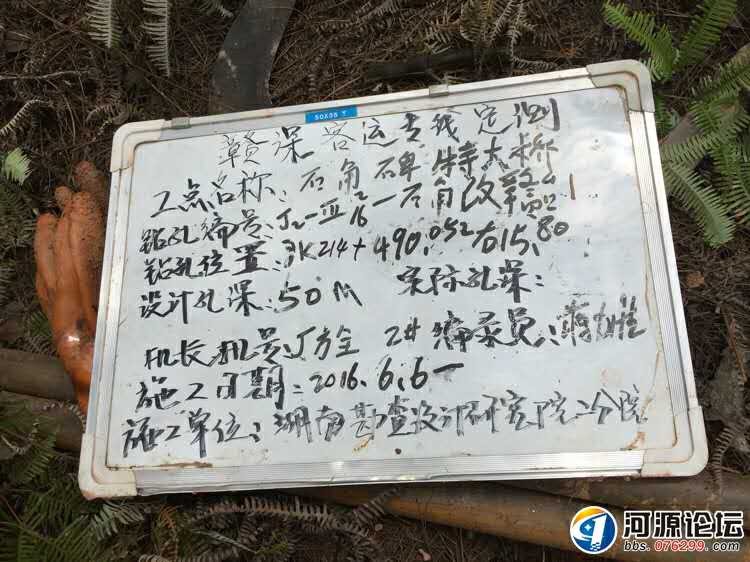 50X35
赣深客运专线定测
工点名称:石角碑特大桥
钻孔编号:J2-Ⅲ 16-2-石角改赣-1
钻孔位置:K214+490.052 右15.80
设计孔深:50M 实际孔深:
机长机号 方全 2# 编录员:蒋
施工日期:2016.6.6—
施工单位:湖南勘查设计研究院二分院
河源论坛
bbs.076299.com